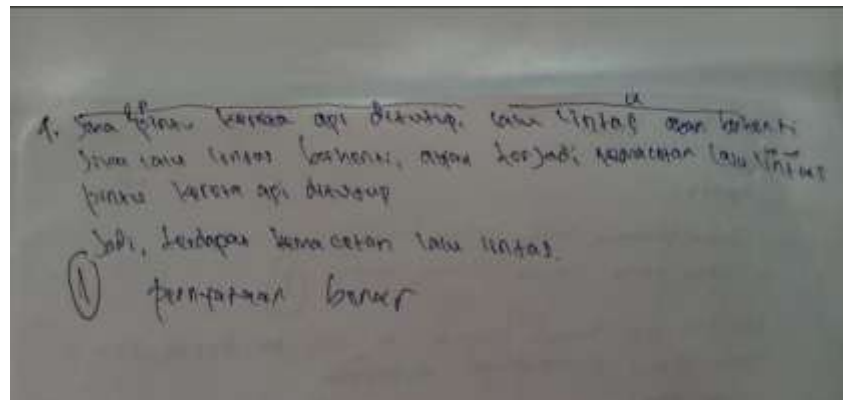 1. Jika pintu kereta api ditutup, lalu lintas akan berhenti
Jika lalu lintas berhenti, akan terjadi kemacetan lalu lintas
pintu kereta api ditutup
Jadi, terdapat kemacetan lalu lintas.
1 pernyataan benar